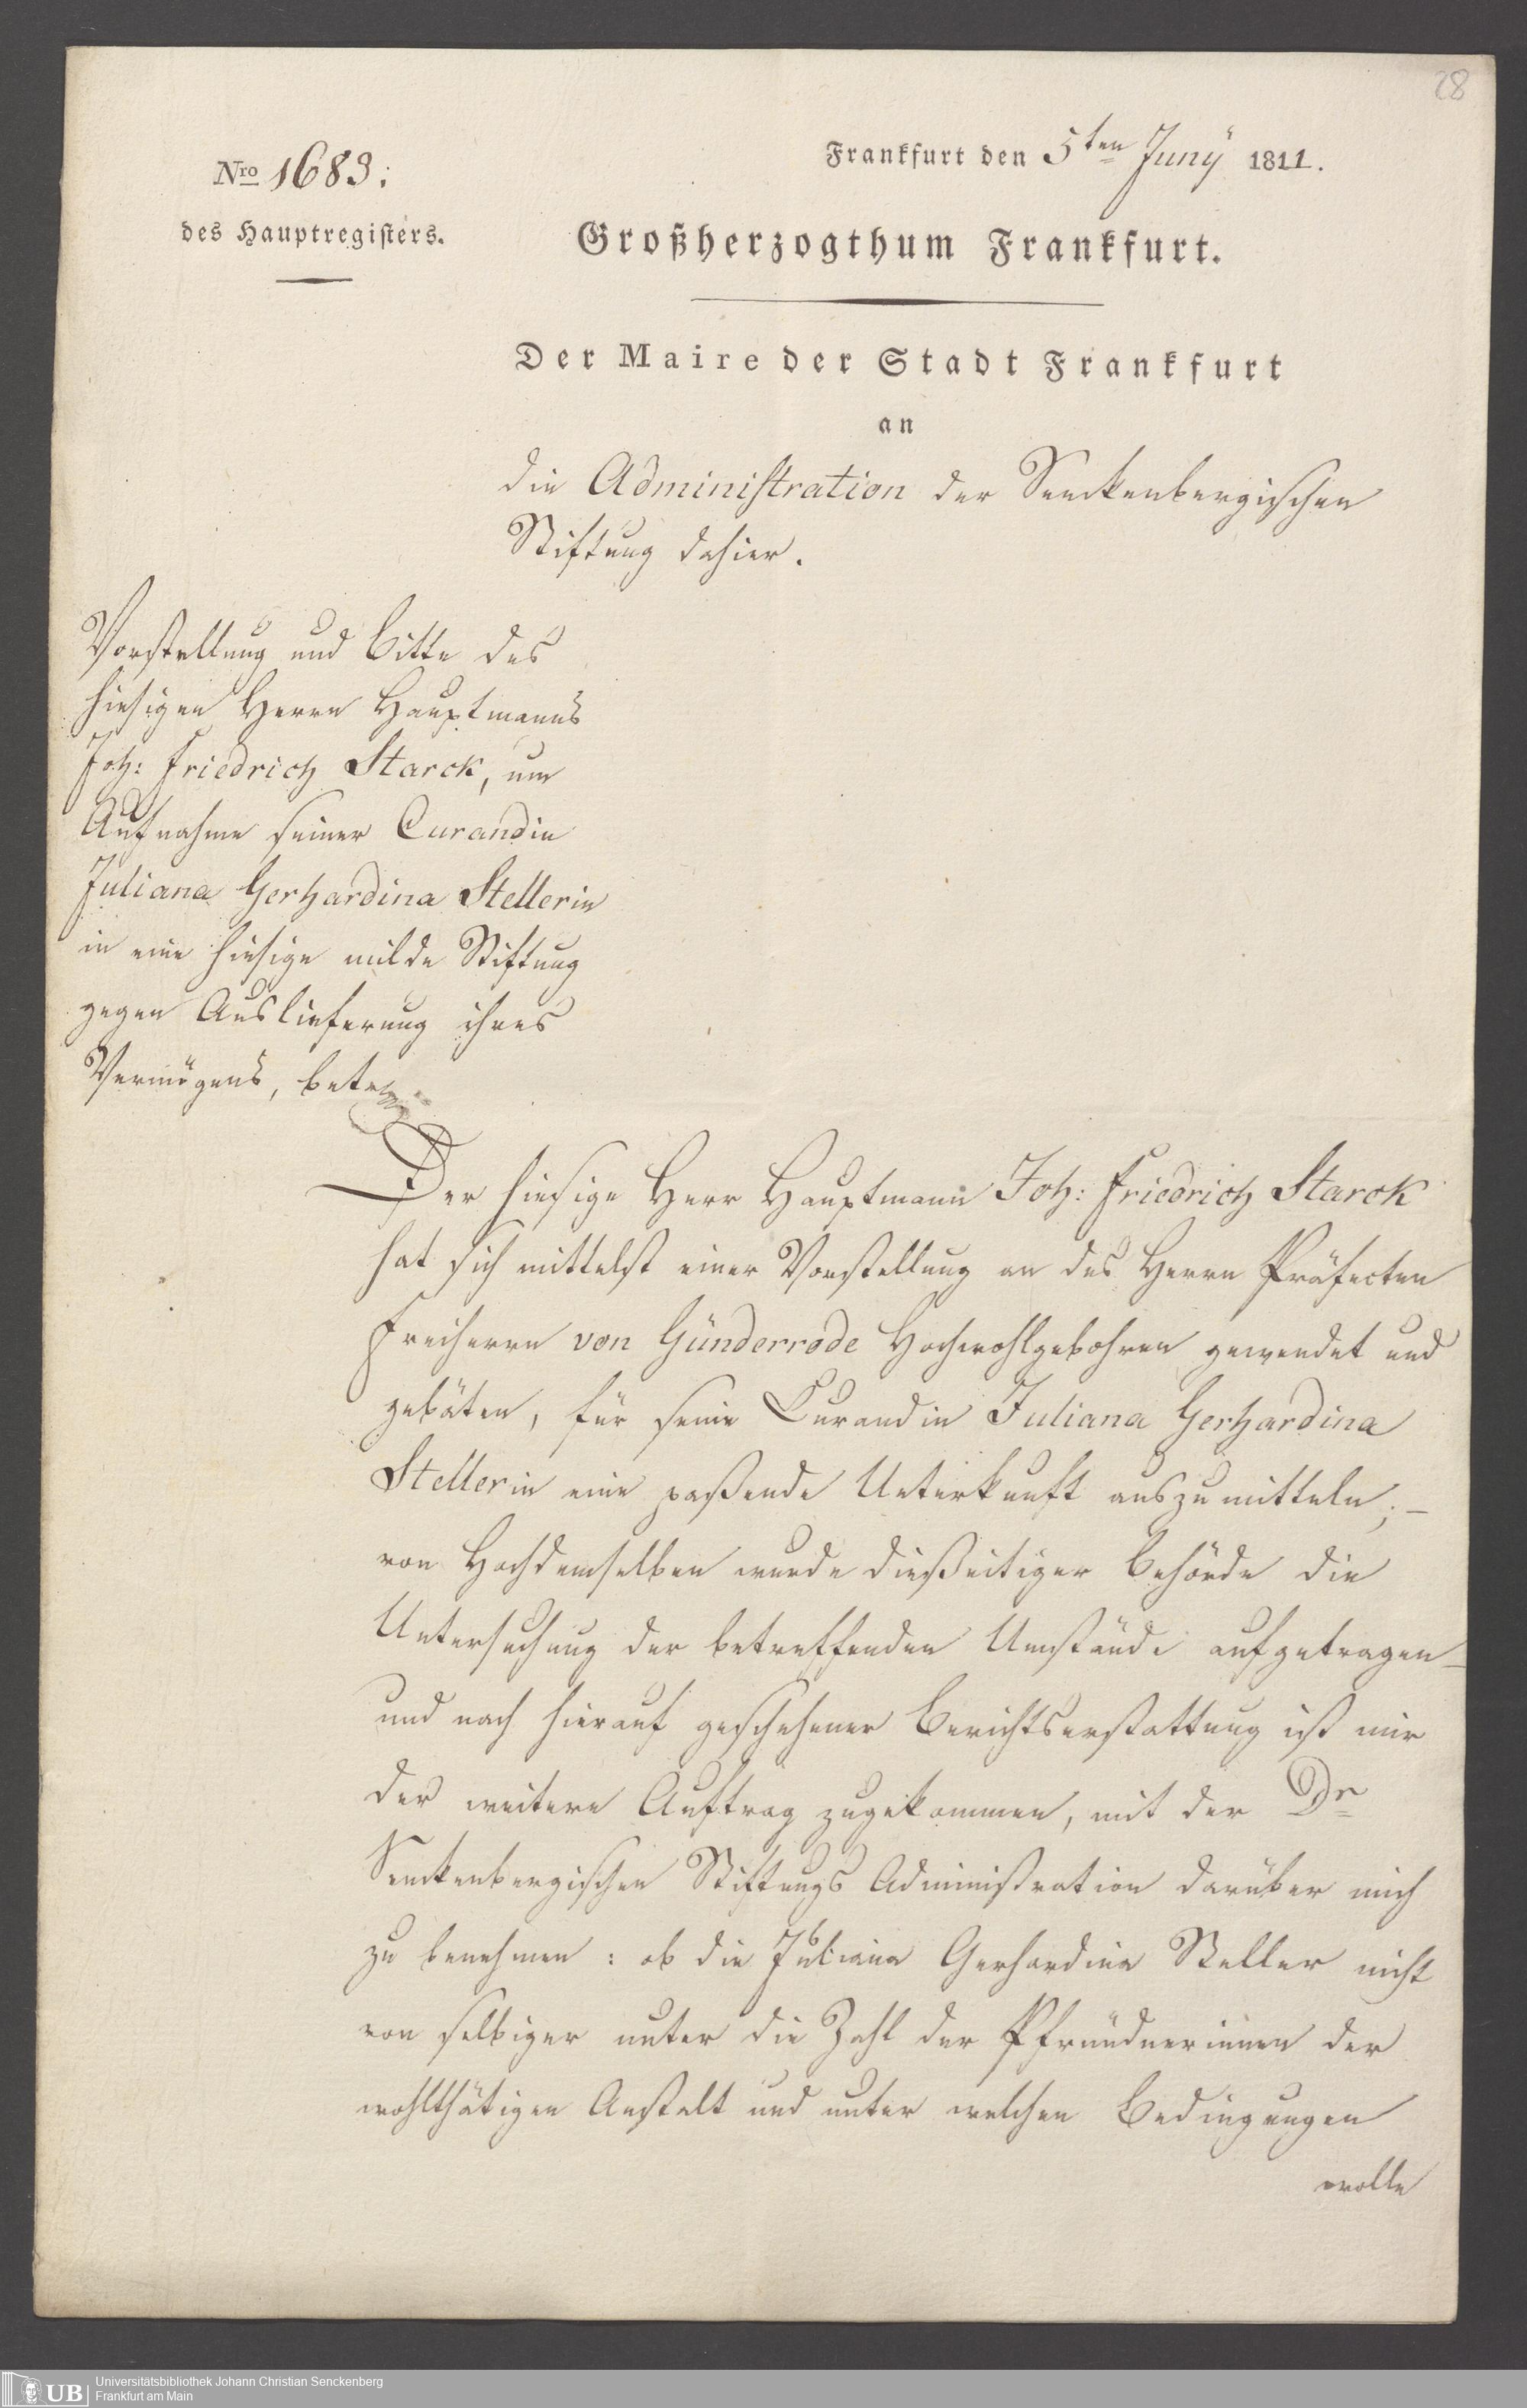 28
Nro 1683.
des Hauptregisters.
Frankfurt den 5ten Juny 1811.
Großherzogthum Frankfurt.
Der Maire der Stadt Frankfurt
an
die Administration der Senckenbergischen
Stiftung dahier.
Vorstellung und Bitte des
hiesigen Herrn Hauptmanns
Joh: Friedrich Starck, um
Aufnahme seiner Curandin
Juliana Gerhardina Stellerin
in eine hiesige milde Stiftung
gegen Auslieferung ihres
Vermögens, betr.
Der hiesige Herr Hauptmann Joh: Friedrich Starck
hat sich mittelst einer Vorstellung an des Herrn Präfecten
Freiherrn von Günderrode Hochwohlgebohren gewendet und
gebäten, für seine Curandin Juliana Gerhardina
Stellerin eine paßende Unterkunft auszumitteln; –
von Hochdemselben wurde dießeitiger Behörde die
Untersuchung der betreffenden Umstände aufgetragen –
und nach hierauf geschehener Berichtserstattung ist mir
der weitere Auftrag zugekommen, mit der Dr
Senckenbergischen Stiftungs Administration darüber mich
zu benehmen: ob die Juliana Gerhardina Steller nicht
von selbiger unter die Zahl der Pfründnerinnen der
wohlthätigen Anstalt und unter welchen Bedingungen
wolle
UB
Universitätsbibliothek Johann Christian Senckenberg
Frankfurt am Main